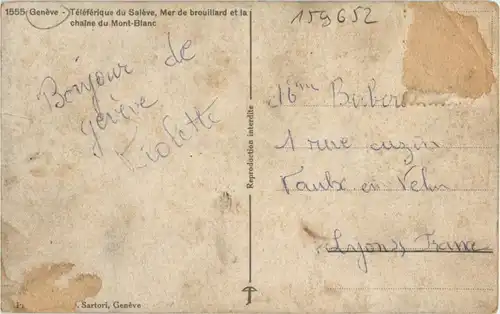 1555 Genève - Téléférique du Salève, Mer de brouillard et la
chaîne du Mont-Blanc
159652
Bonjour de
genève
Violette
Reproduction interdite
1 rue
Vaulx en Velin
Lyon France
Sartori, Genève